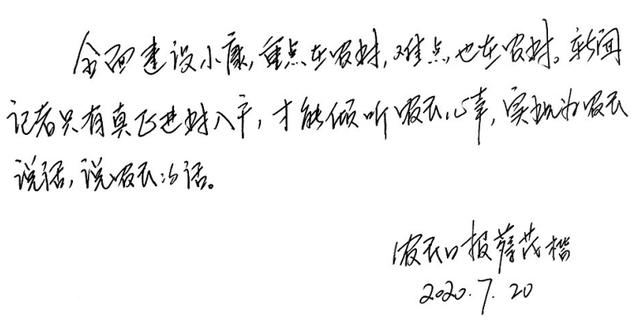 全面建设小康,重点在农村,难点也在农村。新闻
记者只有真正进村入户,才能倾听农民心声,实现为农民
说话,说农民的话。
农民日报蔡茂楷
2020.7.20